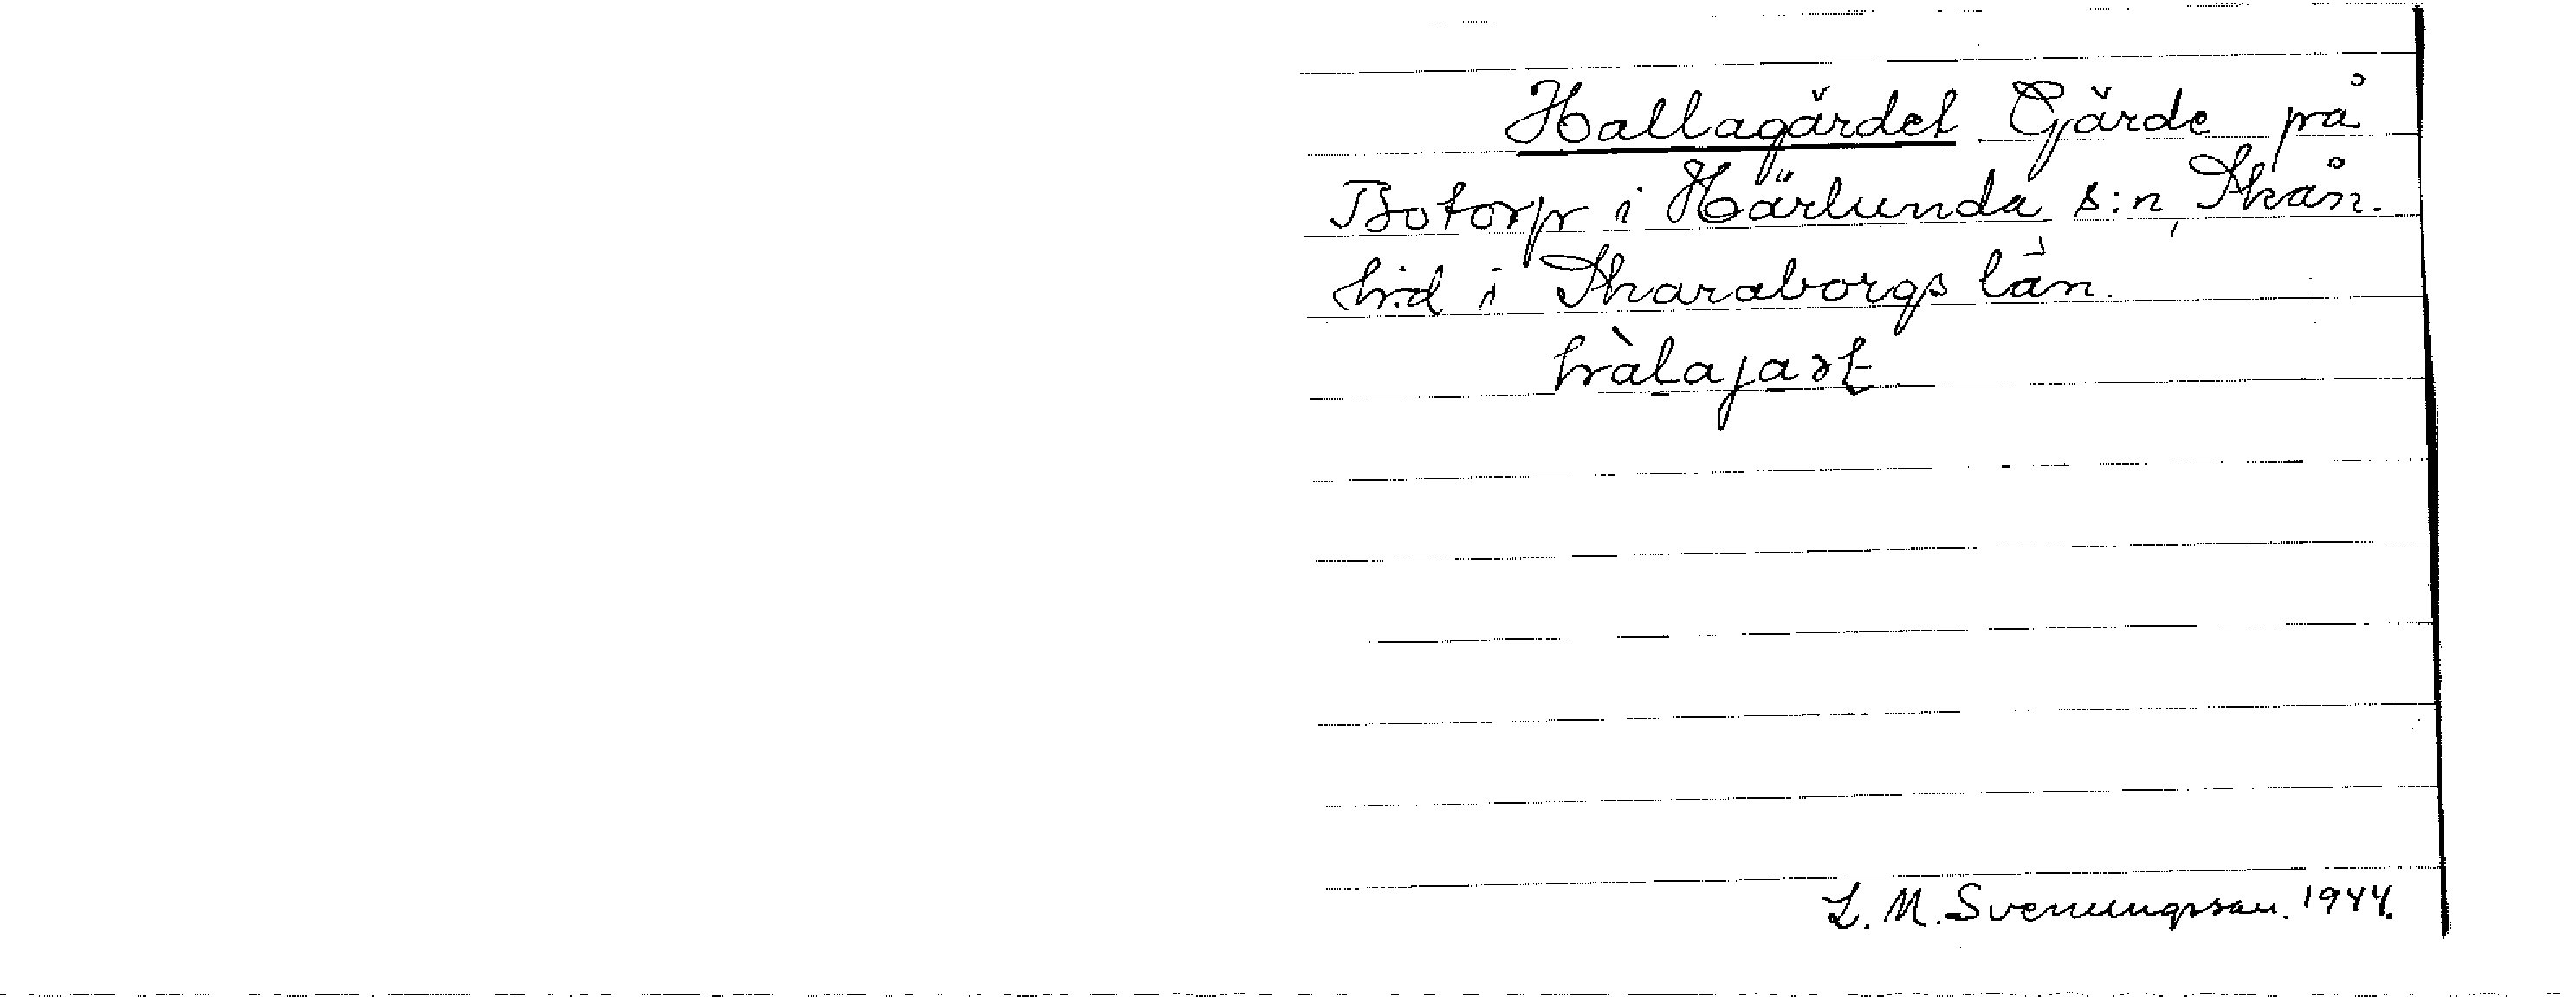 Hallagärdet Gärde på
Botorp i Härlunda s:n, Skån.
hd i Skaraborgs län.
L. M. Svenungsson. 1944.